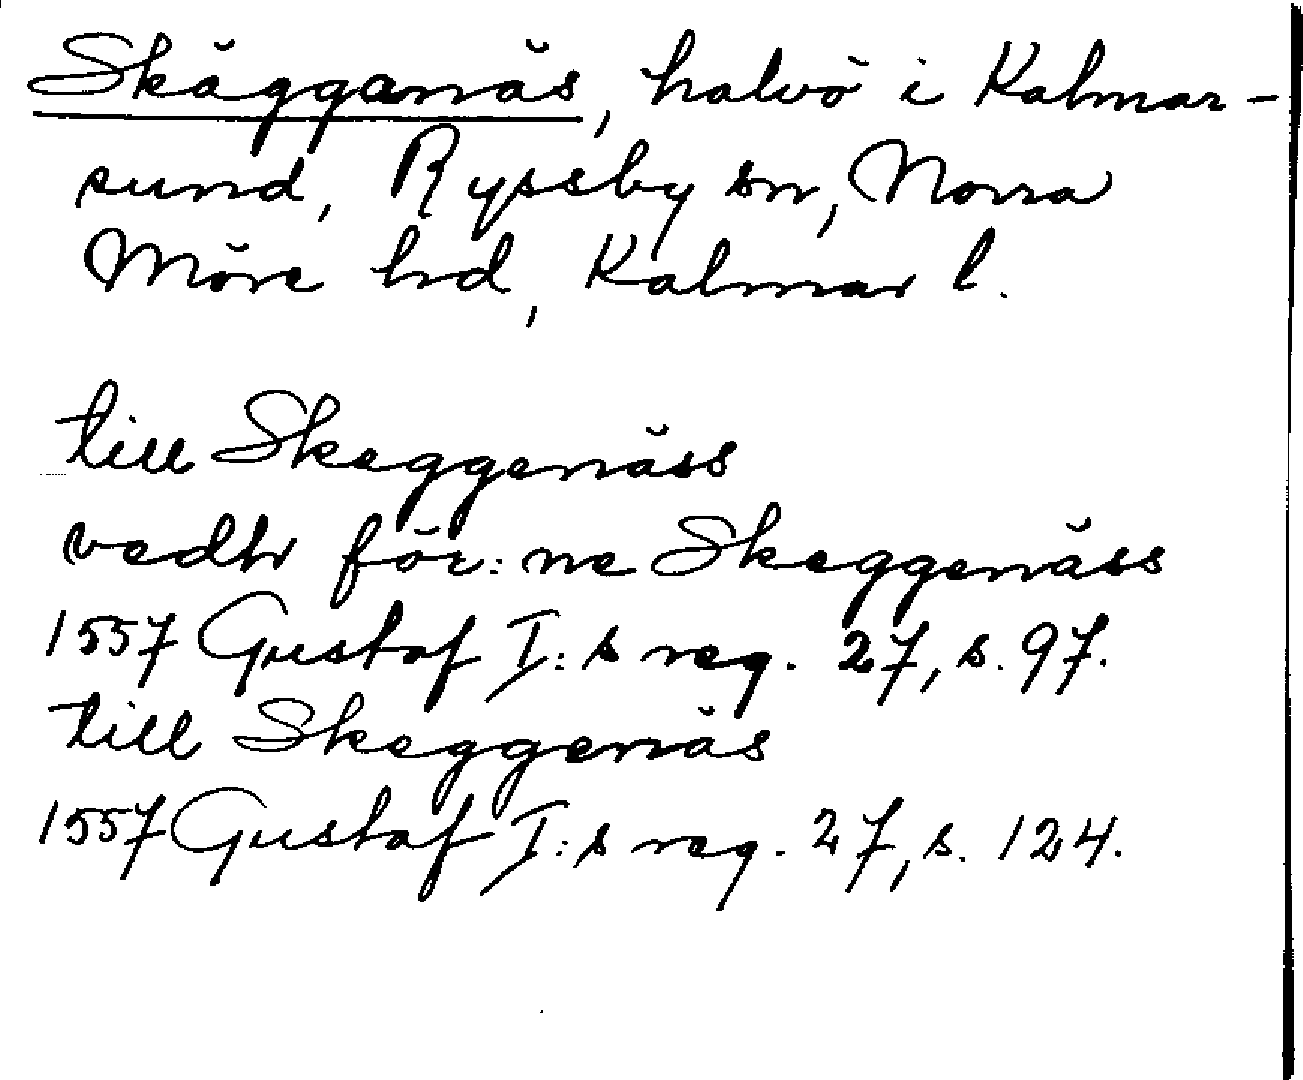 Skäggenäs, halvö i Kalmar-
sund, Ryssby sn, Norra
Möre hd, Kalmar l.
till Skeggenäss
vedh för:ne Skeggenäss
1557 Gustaf I:s reg. 27, s. 97.
till Skeggenäs
1557 Gustaf I:s reg. 27, s. 124.